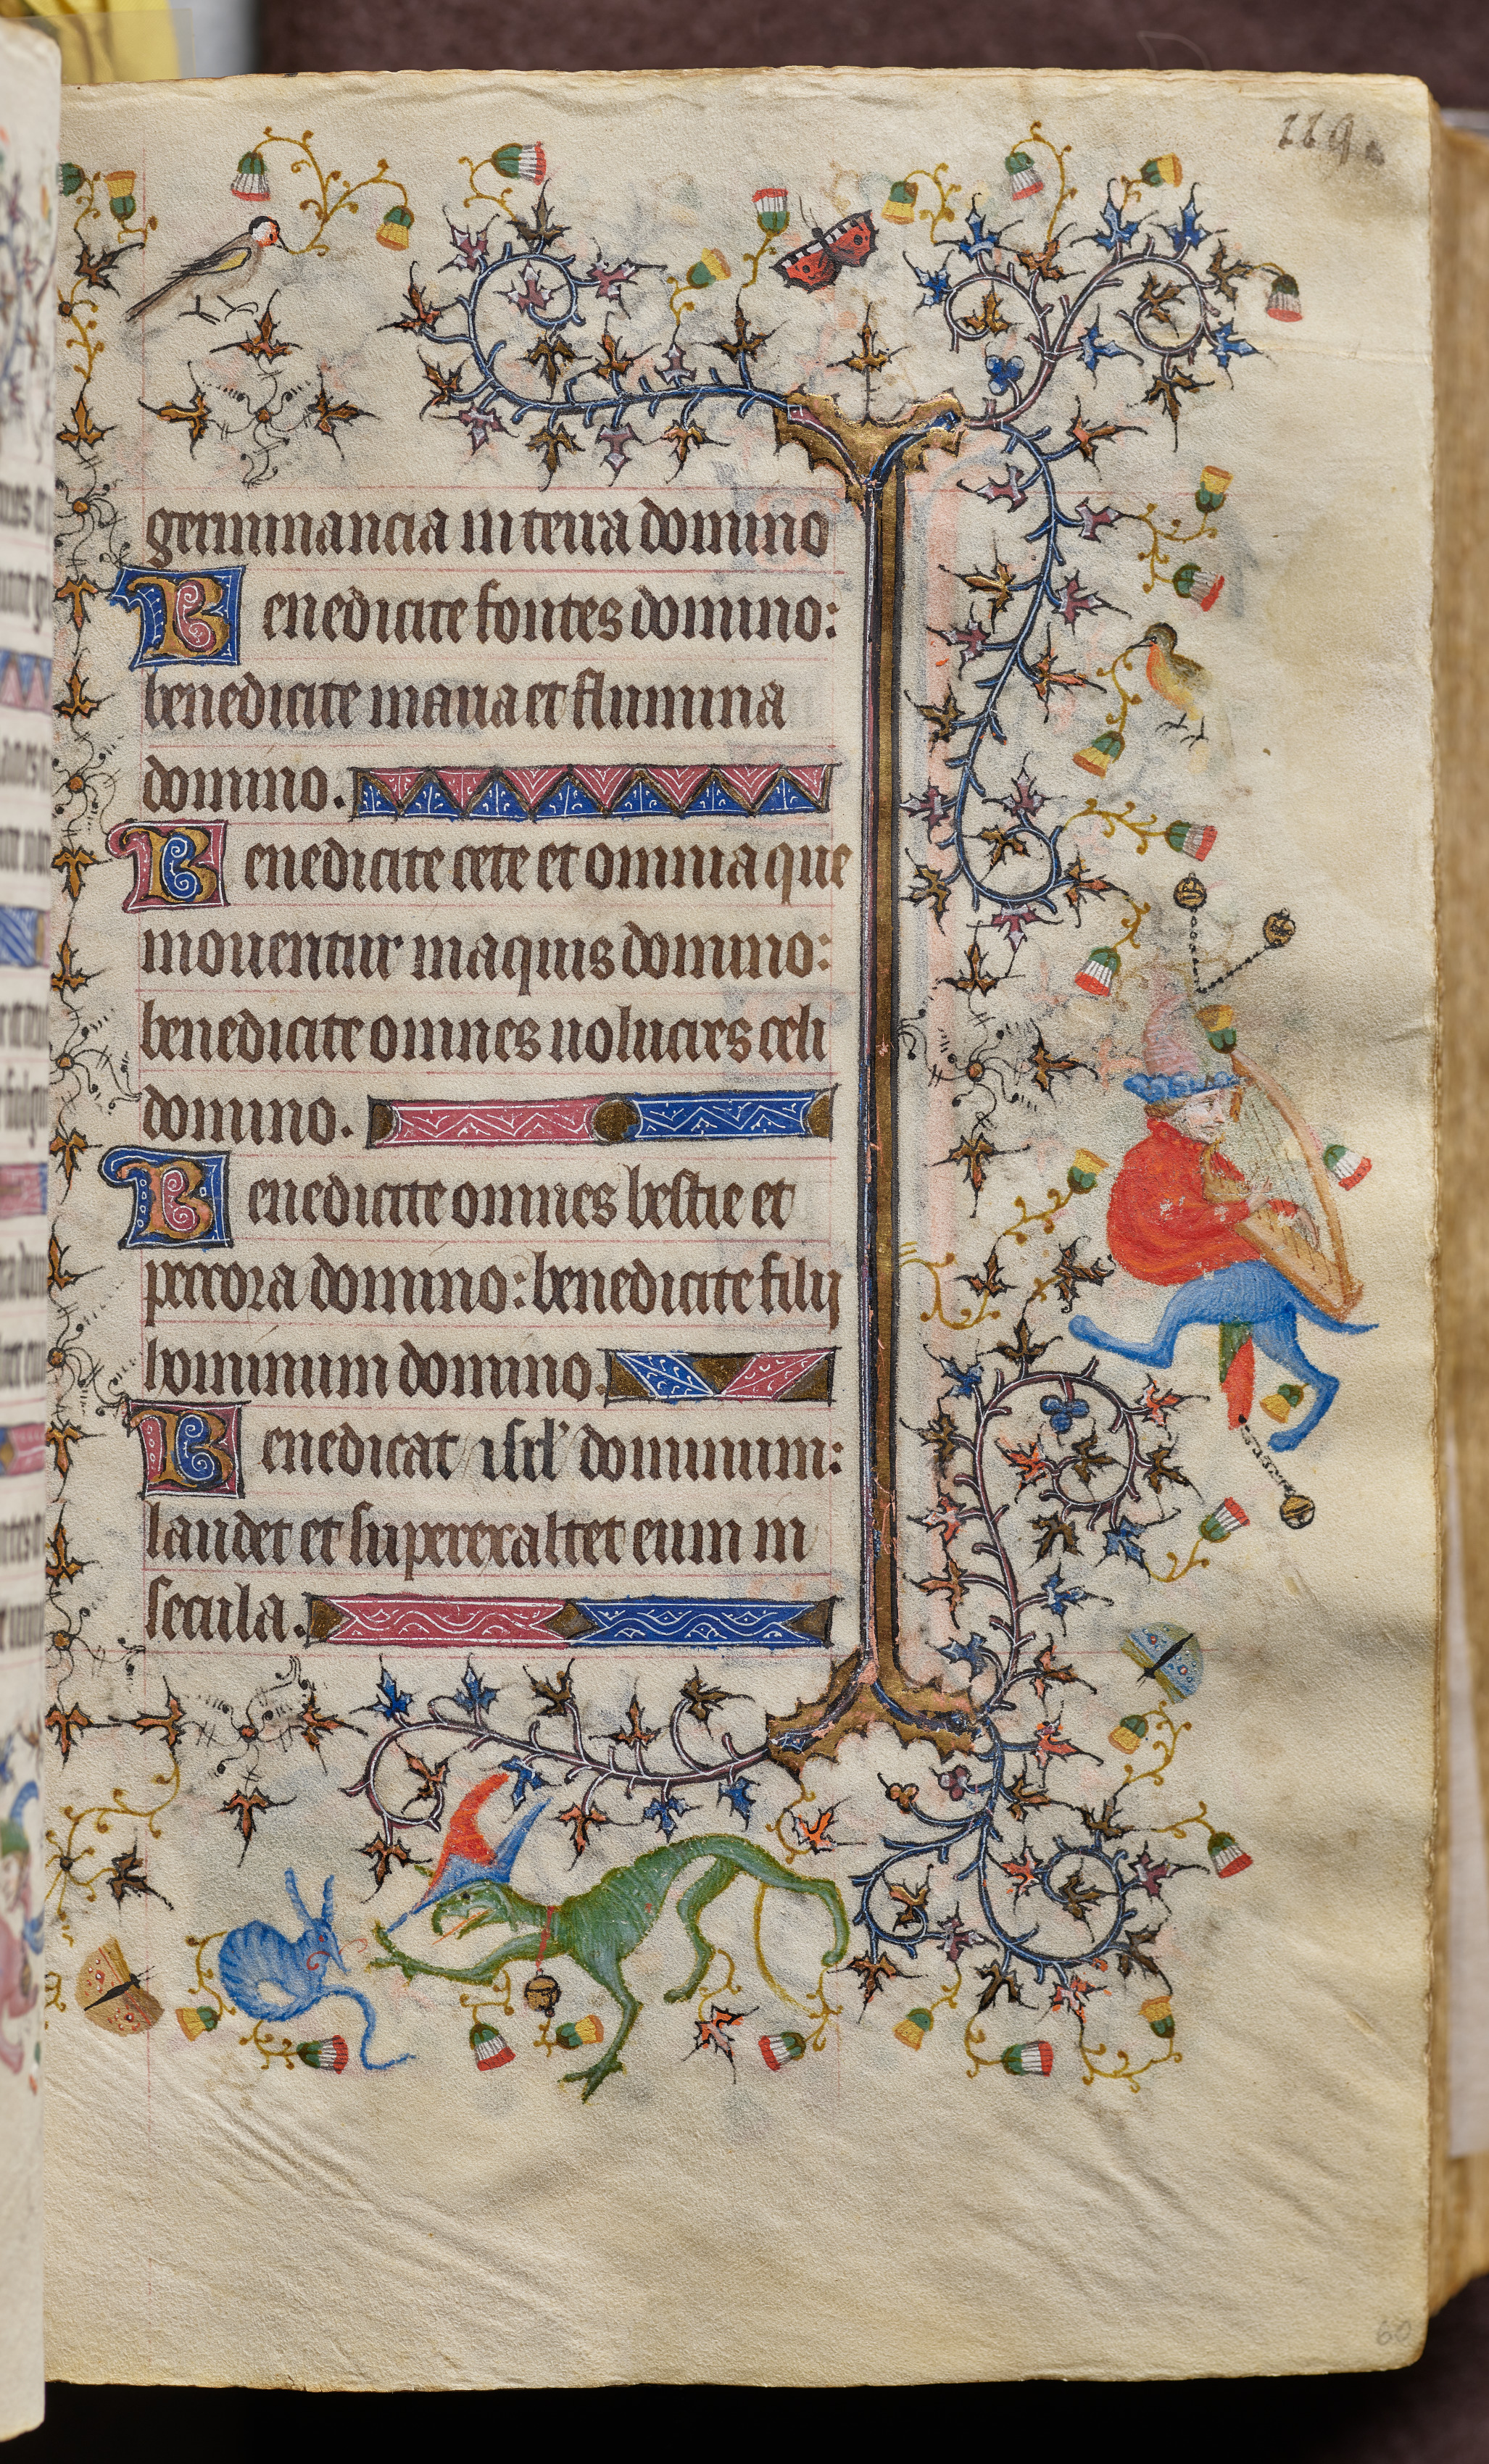 119.
germinancia in terra domino
Benedicite fontes domino:
benedicite maria et flumina
domino.
Benedicite cete et omnia que
mouentur in aquis domino:
benedicite omnes uolucres celi
domino.
Benedicite omnes bestie et
peccora domino: benedicite filij
hominum domino.
Benedicat isrl' dominum:
laudet et superexaltet eum in
secula.
60